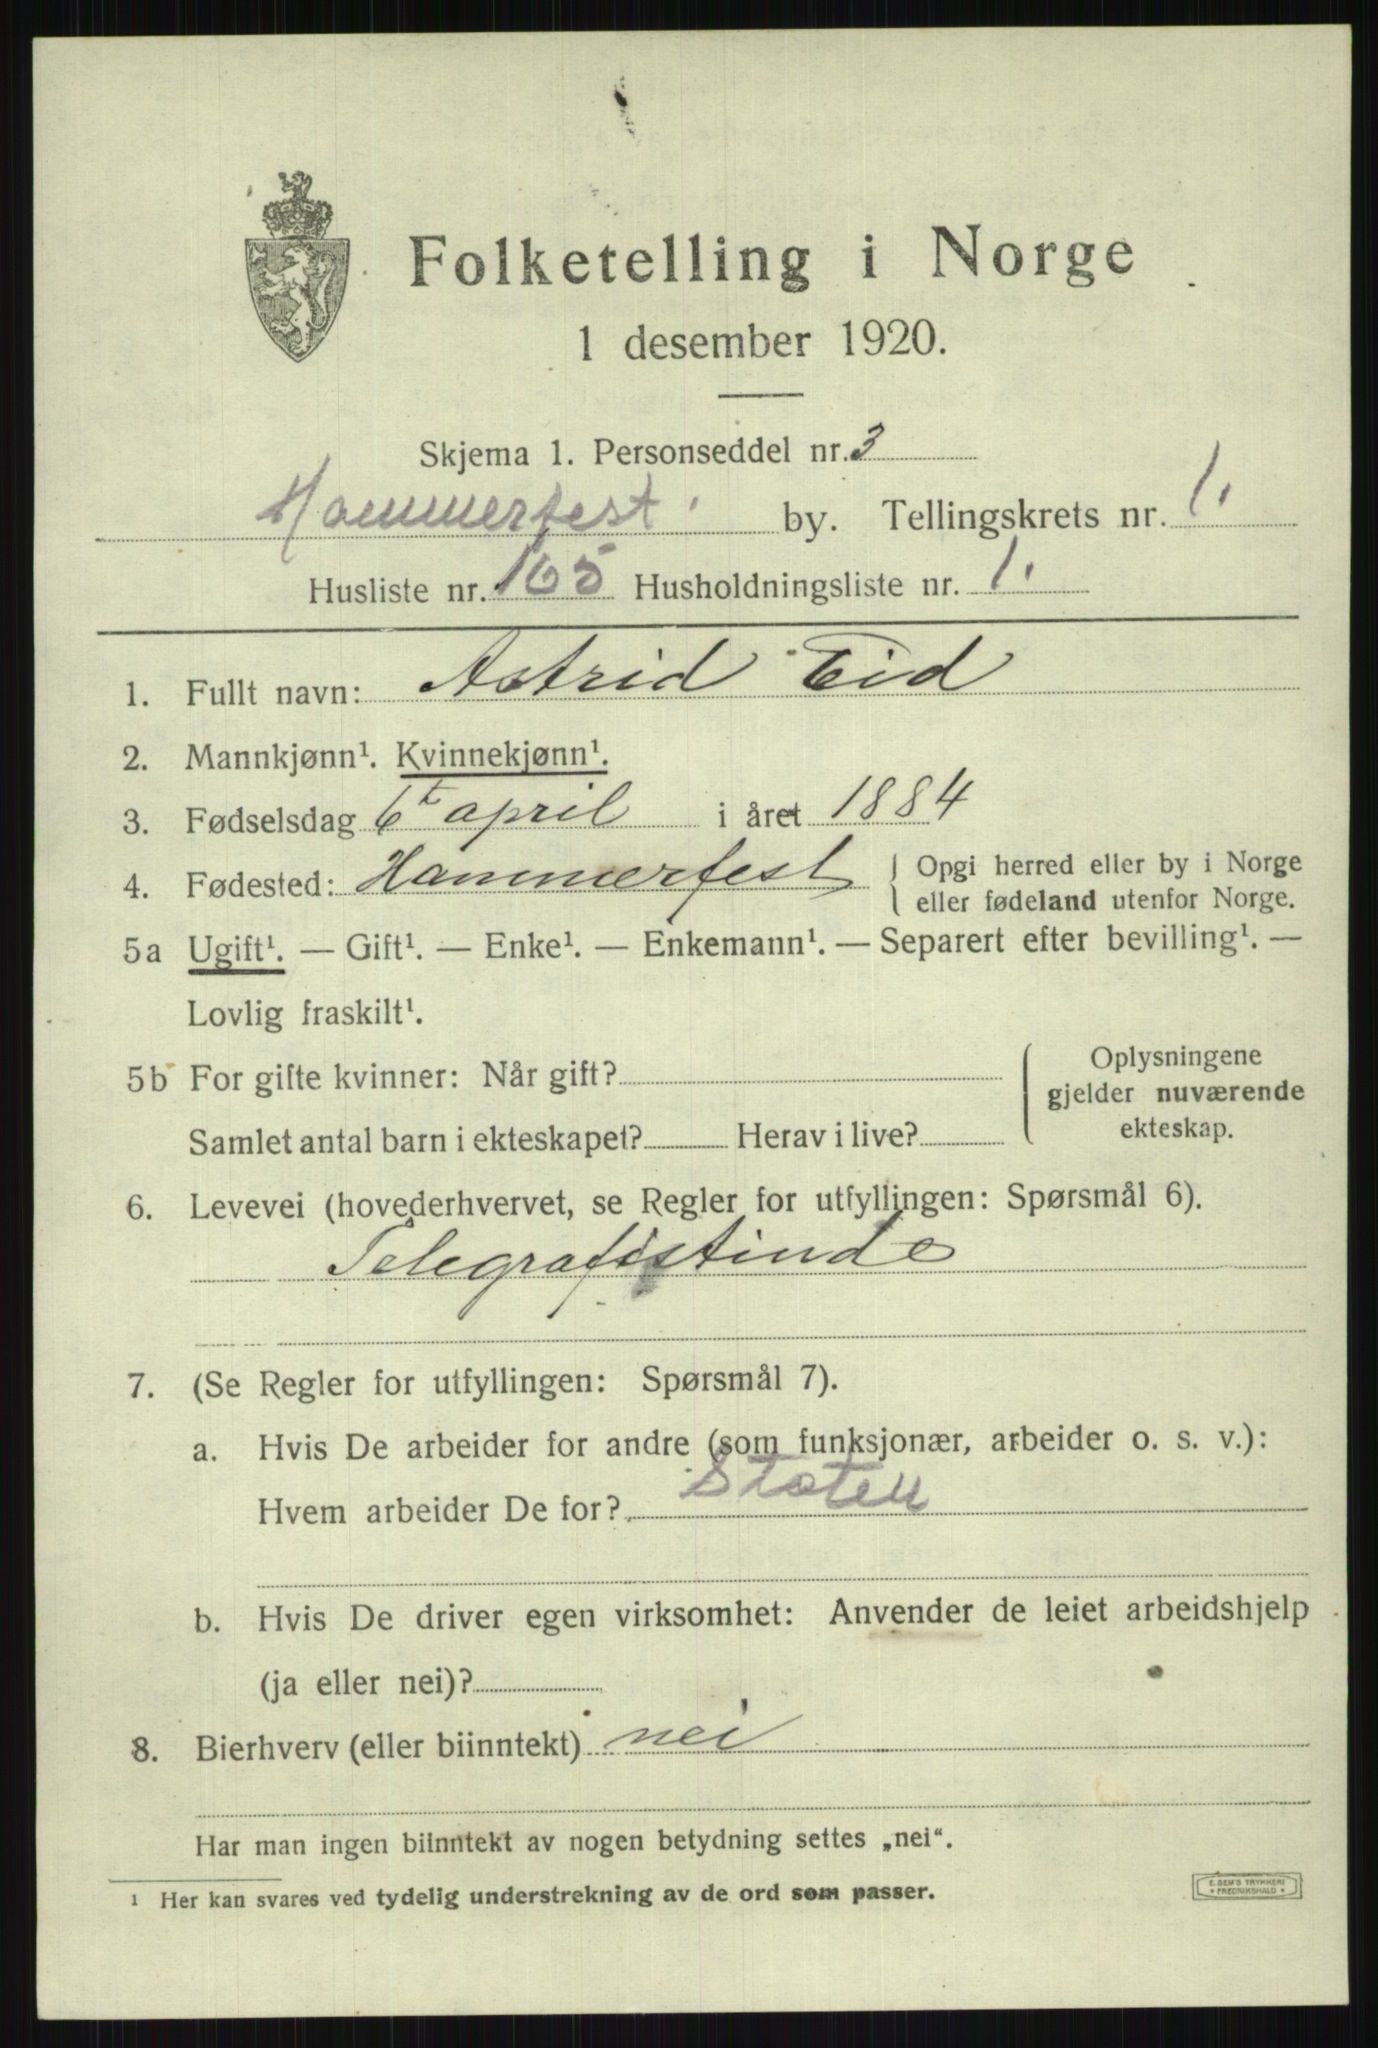 Folketelling i Norge
1 desember 1920.
Skjema 1. Personseddel nr. 3
Hammerfest by. Tellingskrets nr. 1.
Husliste nr. 165 Husholdningsliste nr. 1.
1. Fullt navn: Astrid Eid
2. Mannkjønn¹. Kvinnekjønn¹.
3. Fødselsdag 6t april i året 1884
4. Fødested: Hammerfest { Opgi herred eller by i Norge
eller fødeland utenfor Norge.
5a Ugift¹. — Gift¹. — Enke¹. — Enkemann¹. — Separert efter bevilling¹. —
Lovlig fraskilt¹.
5b For gifte kvinner: Når gift?
Samlet antal barn i ekteskapet? Herav i live?
{ Oplysningene
gjelder nuværende
ekteskap.
6. Levevei (hovederhvervet, se Regler for utfyllingen: Spørsmål 6).
Telegrafistinde
7. (Se Regler for utfyllingen: Spørsmål 7).
a. Hvis De arbeider for andre (som funksjonær, arbeider o. s. v.):
Hvem arbeider De for? Staten
b. Hvis De driver egen virksomhet: Anvender de leiet arbeidshjelp
(ja eller nei)?
8. Bierhverv (eller biinntekt) nei
Har man ingen biinntekt av nogen betydning settes „nei“.
¹ Her kan svares ved tydelig understrekning av de ord som passer.
E. SEM'S TRYKKERI
* FREDRIKSHALD *